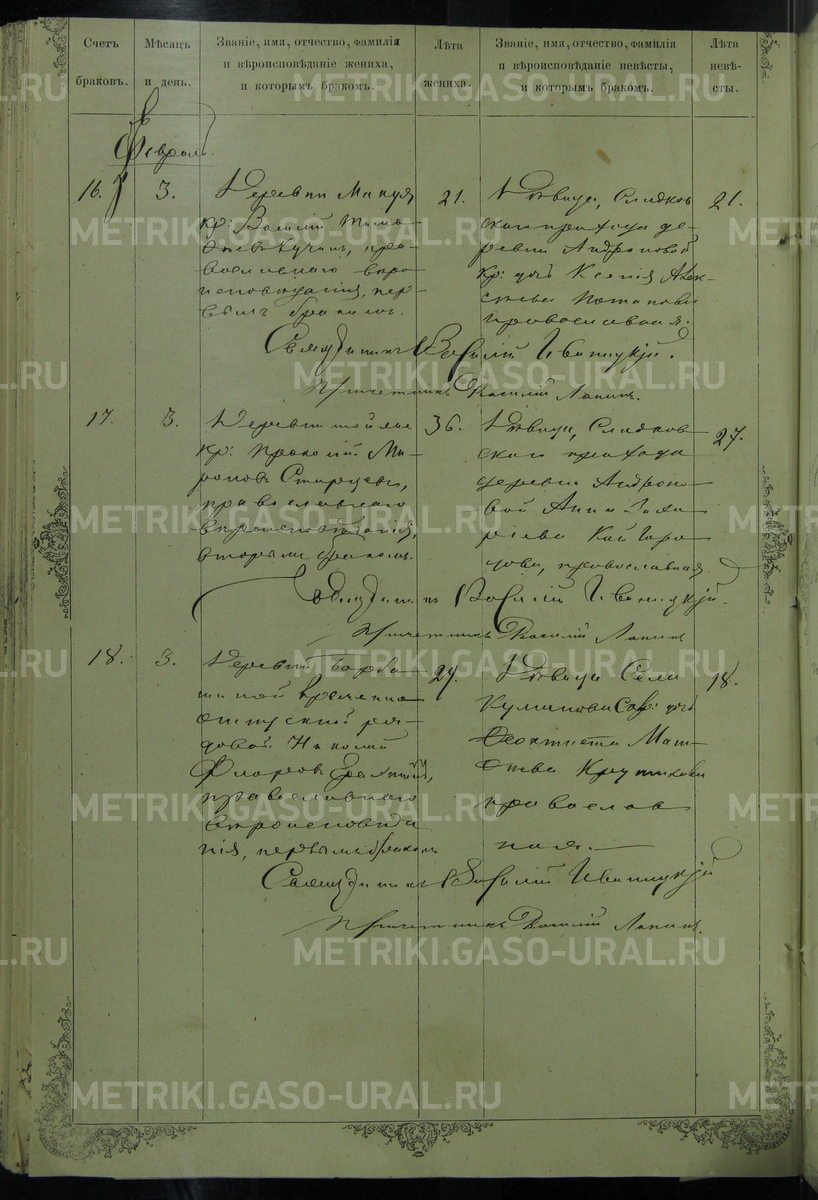 Счетъ браковъ.
Мѣсяцъ и день.
Званіе, имя, отчество, фамилія
и вѣроисповѣданіе жениха,
и которымъ бракомъ.
Лѣта жениха.
Званіе, имя, отчество, фамилія
и вѣроисповѣданіе невѣсты,
и которымъ бракомъ.
Лѣта невѣ-
сты.
Февраль.
16.
3.
Деревни
кр: Василій Тимо-
ѳеевъ пра-
вославнаго вѣро
исповѣданія, пер-
вымъ бракомъ.
21.
Дѣвица, Сладков
скаго прихода де-
ревни Андроновой
кр: дочь Ксенія Алек-
сѣева Потапова
православная.
21.
Священникъ Василій Иваницкій.
Причетникъ Василій Ляпинъ.
17.
3.
Деревни той же
кр: Прокопій Ми-
роновъ Старцевъ,
православнаго
вѣроисповѣданія,
вторымъ бракомъ.
36.
Дѣвица, Сладков
скаго прихода
деревни Андроно-
вой Анна Заха
ріева Кайгоро
дова, православная.
27.
Священникъ Василій Иваницкій.
Причетникъ Василій Ляпинъ
18.
3.
Деревни
временно
отпускной ря-
довой Николай
Флоровъ
православнаго
вѣроисповѣда
нія, первымъ бракомъ
24.
Дѣвица Села
дочь
Ѳеоктиста Мат-
ѳеева Крутикова
православ
ная.
18.
Священникъ Василій Иваницкій
Причетникъ Василій Ляпинъ.
METRIKI.GASO-URAL.RU